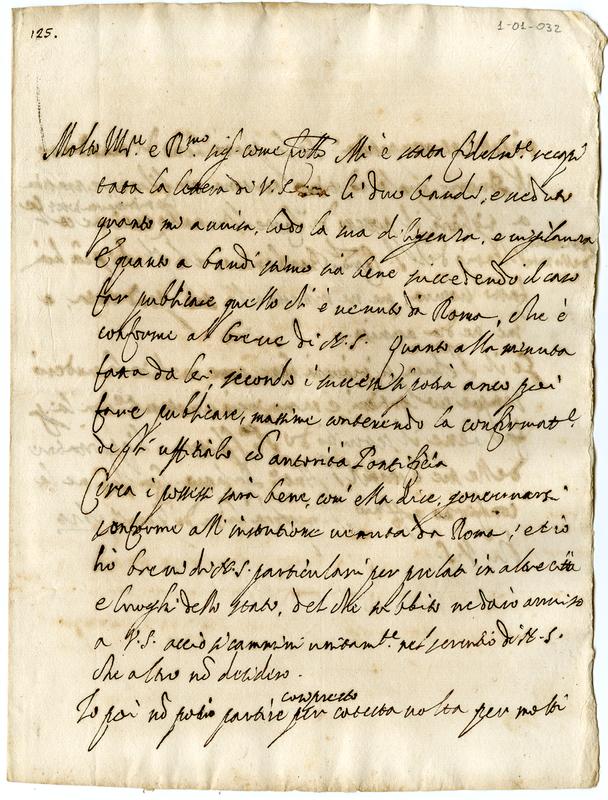 125.
1-01-032
Molto Ill.re e R.mo sig.r come fr.llo Mi è stata fidelm.te recapi
tata la lettera di V.S. li duo bandi, e veduto
quanto mi avvisa, lodo la sua diligenza, e vigilanza
E quanto a bandi stimo sia bene succedendo il caso
far publicare quello ch' è venuto da Roma, che è
conforme al breve di N.S. Quanto alla minuta
fatta da lei, secondo i successi si potrà anco poi
fare publicare, massime contenendo la confirmat.e
de gli uffitiali cõ autorità Pontificia
Circa i possessi sarà bene, com' ella dice, governarsi
conforme all' instrutione venuta da Roma; et io
hò breve di N.S. particulari per prelati in altre città
e luoghi dello stato, del che subbito ne darò avviso
a V.S. acciò si cammini unitam.te nel servitio di N.S.
che altro nõ desidero.
Io poi nõ posso partire così presto per cotesta volta per molti